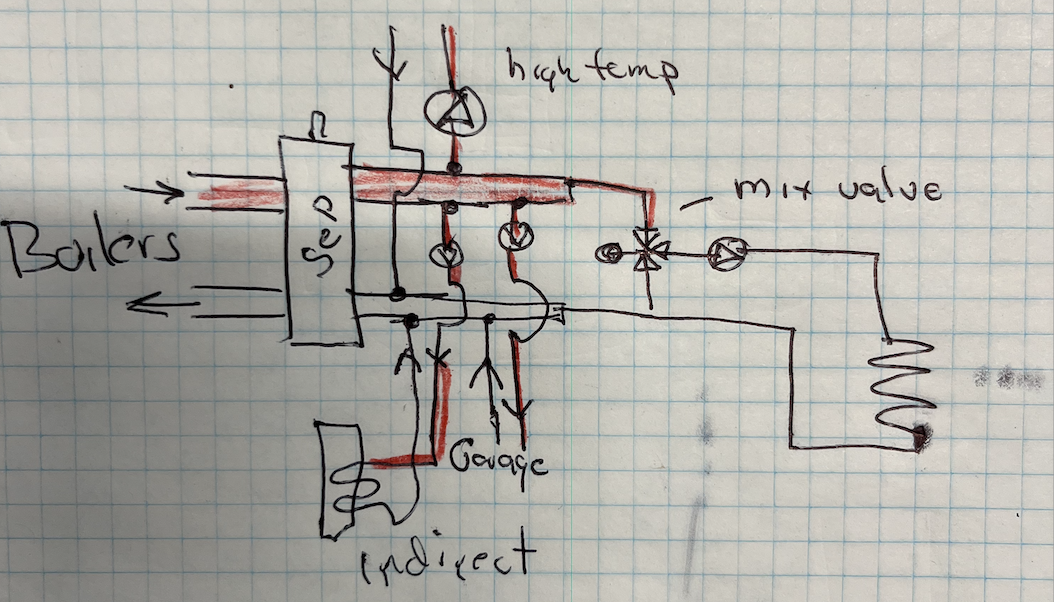 high temp
mix valve
Boilers
Sep
Garage
indirect